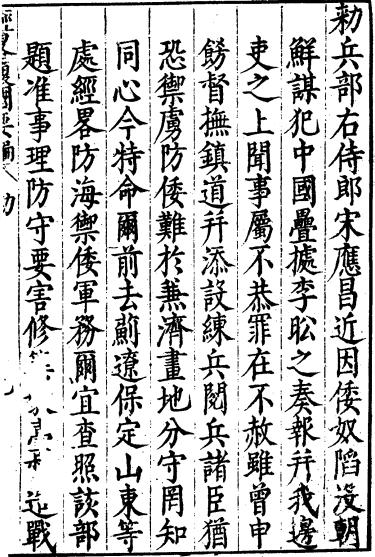 勑兵部右侍郎宋應昌近因倭奴陷没朝
鮮謀犯中國疊據李昖之奏報幷我邊
吏之上聞事屬不恭罪在不赦雖曾申
飭督撫鎮道幷添設練兵閱兵諸臣猶
恐禦虜防倭難扵兼濟畫地分守罔知
同心今特命爾前去薊遼保定山東等
處經畧防海禦倭軍務爾宜查照該部
題准事理防守要害修
戰
經畧復國要編 勑